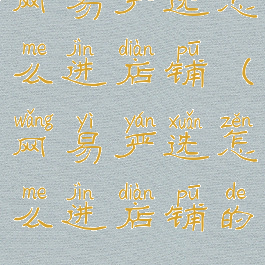 网易严选怎
me jìn diàn pū
么进店铺（
wǎng yì yán xuǎn zěn
网易严选怎
me jìn diàn pū de
么进店铺的